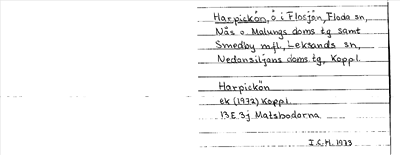 Harpickön, ö i Flosjön, Floda sn,
Nås o. Malungs doms tg samt
Smedby mfl, Leksands sn,
Nedansiljans doms tg, Koppl.
Harpickön
ek (1972) Koppl.
13E 3j Matsbodarna
I.C.H. 1973